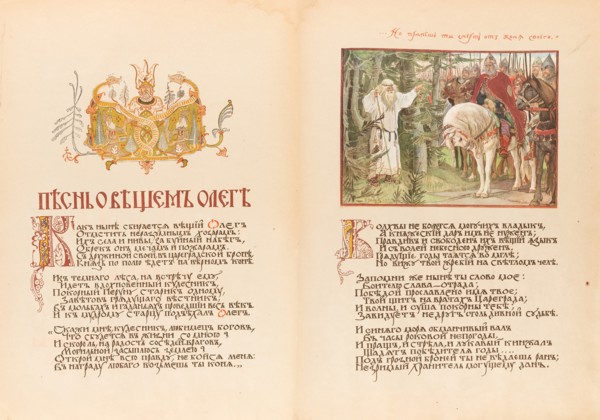 ПѢСНЬ О ВѢЩЕМЪ ОЛЕГѢ
Какъ нынѣ сбирается вѣщій Олегъ
Отмстить неразумнымъ хозарамъ:
Ихъ села и нивы, за буйный набѣгъ,
Обрекъ онъ мечамъ и пожарамъ.
Съ дружиной своей, въ цареградской бронѣ,
Князь по полю ѣдетъ на вѣрномъ конѣ.
Изъ темнаго лѣса, на встрѣчу ему,
Идетъ вдохновенный кудесникъ,
Покорный Перуну старикъ одному,
Завѣтовъ грядущаго вѣстникъ,
Въ мольбахъ и гаданьяхъ проведшій весь вѣкъ.
И къ мудрому старцу подъѣхалъ Олегъ.
„Скажи мнѣ, кудесникъ, любимецъ боговъ,
Что сбудется въ жизни со мною?
И скоро ль, на радость сосѣдей враговъ,
Могильной засыплюсь землею?
Открой мнѣ всю правду, не бойся меня:
Въ награду любаго возьмешь ты коня„...
Но примешь ты смерть отъ коня своего.
Волхвы не боятся могучихъ владыкъ,
А княжескій даръ имъ не нуженъ;
Правдивъ и свободенъ ихъ вѣщій языкъ
И съ волей небесною друженъ.
Грядущіе годы таятся во мглѣ;
Но вижу твой жребій на свѣтломъ челѣ.
Запомни же нынѣ ты слово мое:
Воителю слава—отрада;
Побѣдой прославлено имя твое;
Твой щитъ на вратахъ Цареграда;
И волны и суша покорны тебѣ;
Завидуетъ недругъ столь дивной судьбѣ.
И синяго моря обманчивый валъ
Въ часы роковой непогоды,
И пращъ, и стрѣла, и лукавый кинжалъ
Щадятъ побѣдителя годы...
Подъ грозной броней ты не вѣдаешь ранъ;
Незримый хранитель могущему данъ.